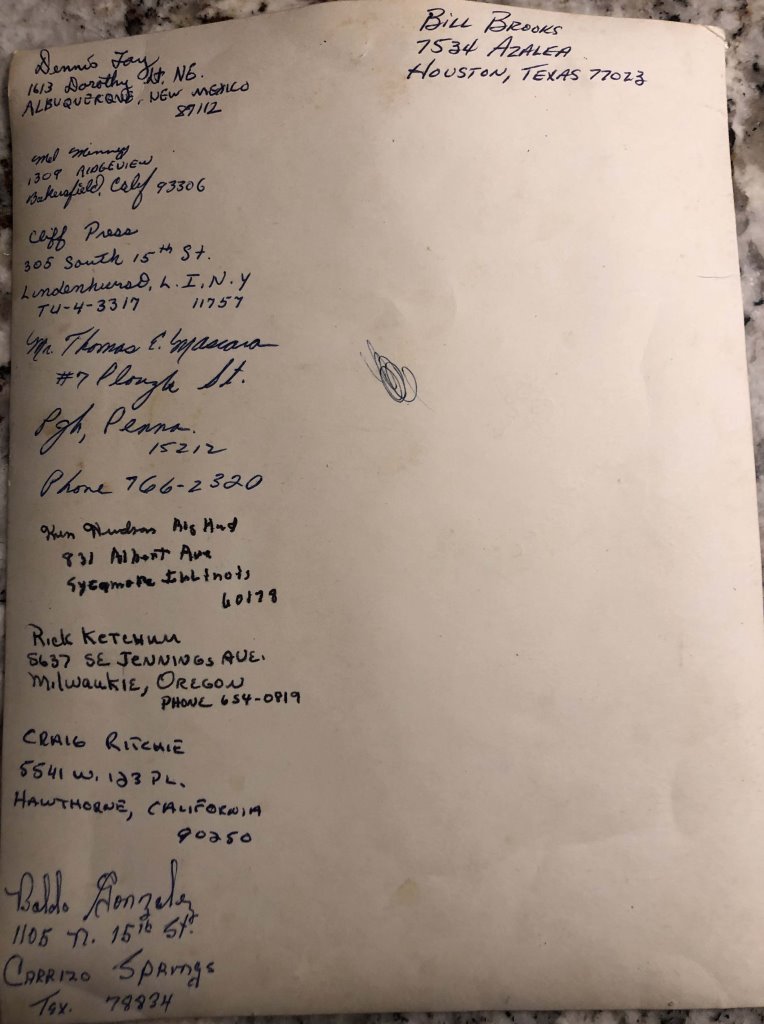 Dennis Fay
1613 Dorothy St. NE.
ALBUQUERQUE, NEW MEXICO
87112
Mel
1309 RIDGEVIEW
Bakersfield, Calif 93306
Cliff Press
305 South 15th St.
Lindenhurst, L.I, N.Y
TU-4-3317 11757
Mr. Thomas E. Mascara
#7 Plough St.
Pgh, Penna.
15212
Phone 766-2320
Ken Hudson
831 Albert Ave
Sycamore Illinois
60178
RICK KETCHUM
5637 SE JENNINGS AVE.
MILWAUKIE, OREGON
PHONE 654-0819
CRAIG RITCHIE
5541 W. 123 PL.
HAWTHORNE, CALIFORNIA
90250
Baldo Gonzalez
1105 N. 15th St.
CARRIZO SPRINGS
Tex. 78834
BILL BROOKS
7534 AZALEA
HOUSTON, TEXAS 77023